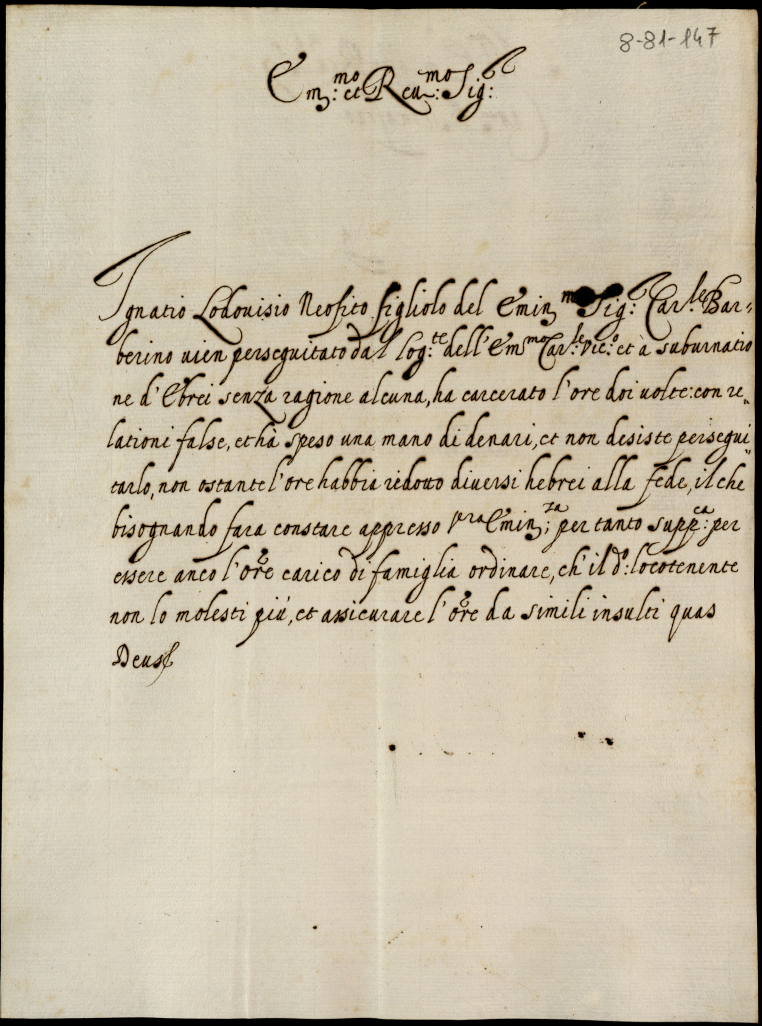 8-81-147
Em:mo et Reu:mo Sig:r
Ignatio Lodouisio Neofito figliolo del Emin:mo Sig:r Car:le Bar=
berino uien perseguitato dal Log:te dell' Em:mo Car:le Vic:o et à suburnatio
ne d'Ebrei senza ragione alcuna, ha carcerato l'ore doi uolte: con re„
lationi false, et hà speso una mano di denari, et non desiste persegui„
tarlo, non ostante l'ore habbia ridotto diuersi hebrei alla fede, il che
bisognando fara constare appresso Vra Emin:za; per tanto supp:ca per
essere anco l'ore carico di famiglia ordinare, ch'il d:o locotenente
non lo molesti piú, et assicurare l'ore da simili insulti quas
Deus